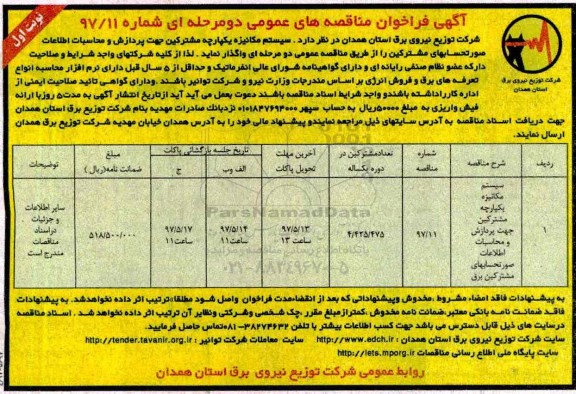 آگهی فراخوان مناقصه های عمومی دومرحله ای شماره ۹۷/۱۱
نوبت اول
شرکت توزیع نیروی برق استان همدان در نظر دارد . سیستم مکانیزه یکپارچه مشترکین جهت پردازش و محاسبات اطلاعات
صورتحسابهای مشترکین را از طریق مناقصه عمومی دو مرحله ای واگذار نماید . لذا از کلیه شرکتهای واجد شرایط و صلاحیت
دارکه عضو نظام صنفی رایانه ای و دارای گواهینامه شورای عالی انفورماتیک و حداقل از ۵ سال قبل دارای نرم افزار محاسبه انواع
تعرفه های برق و فروش انرژی بر اساس مندرجات وزارت نیرو و شرکت توانیر باشند .ودارای گواهی تائید صلاحیت ایمنی از
اداره کارراداشته باشندو واجد شرایط اسناد مناقصه باشند دعوت بعمل می آید آید ازتاریخ انتشار آگهی به مدت۵ روزبا ارائه
فیش واریزی به مبلغ ۵۰۰۰۰۰ریال به حساب سپهر ۰۱۰۱۸۴۷۶۹۴۰۰۰ نزدبانک صادرات مهدیه بنام شرکت توزیع برق استان همدان
جهت دریافت اسناد مناقصه به آدرس سایتهای ذیل مراجعه نمایندو پیشنهاد مالی خود را به آدرس همدان خیابان مهدیه شرکت توزیع برق همدان
ارسال نمایند.
شرکت توزیع نیروی برق
استان همدان
ردیف
شرح مناقصه
شماره مناقصه
تعدادمشترکین در دوره یکساله
آخرین مهلت تحویل پاکات
تاریخ جلسه بازگشائی پاکات
الف وب
ج
مبلغ ضمانت نامه(ریال)
توضیحات
۱
سیستم مکانیزه یکپارچه مشترکین جهت پردازش و محاسبات اطلاعات صورتحسابهای مشترکین برق
۹۷/۱۱
۴/۴۳۵/۴۷۵
۹۷/۵/۱۳ ساعت ۱۳
۹۷/۵/۱۴ ساعت۱۱
۹۷/۵/۱۷ ساعت۱۱
۵۱۸/۵۰۰/۰۰۰
سایر اطلاعات و جزئیات دراسناد مناقصات مندرج است
ParsNamadData
۰۲۱-۸۸۳۴۹۶۷۰-۵
به پیشنهادات فاقد امضاء ،مشروط ،مخدوش وپیشنهاداتی که بعد از انقضاءمدت فراخوان واصل شود مطلقاًترتیب اثر داده نخواهدشد. به پیشنهادات
فاقد ضمانت نامه بانکی معتبر،ضمانت نامه مخدوش ،کمترازمبلغ مقرر ،چک شخصی وشرکتی ونظایر آن ترتیب اثر داده نخواهد شد . اسناد مناقصه
درسایت های ذیل قابل دسترس می باشد جهت کسب اطلاعات بیشتر با تلفن ۳۸۲۷۴۶۳۲-۰۸۱تماس حاصل فرمایید.
سایت شرکت توزیع نیروی برق استان همدان : http://www.edch.ir سایت معاملات شرکت توانیر : http://tender.tavanir.org.ir
سایت پایگاه ملی اطلاع رسانی مناقصات http://iets.mporg.ir
روابط عمومی شرکت توزیع نیروی برق استان همدان